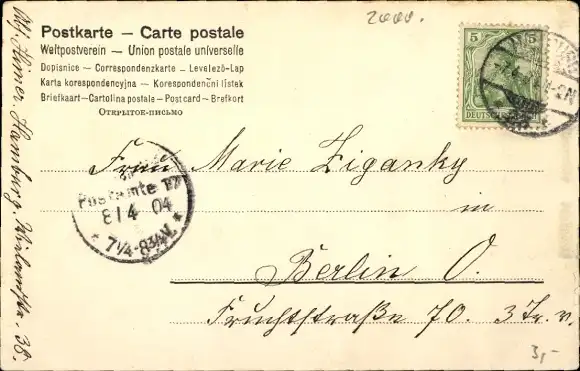 2000.
Postkarte – Carte postale
Weltpostverein – Union postale universelle
Dopisnice – Correspondenzkarte – Levelező-Lap
Karta korespondencyjna – Korespondenční lístek
Briefkaart – Cartolina postale – Postcard – Brefkort
Открытое-письмо
5 5
DEUTSCHES
Frau Marie Ziganky
in
Berlin O.
Fruchtstraße 70. 3 Tr. v.
Postamte 17
8/4 04
* 7¼-8¾V. *
Hamburg
38.
3,-